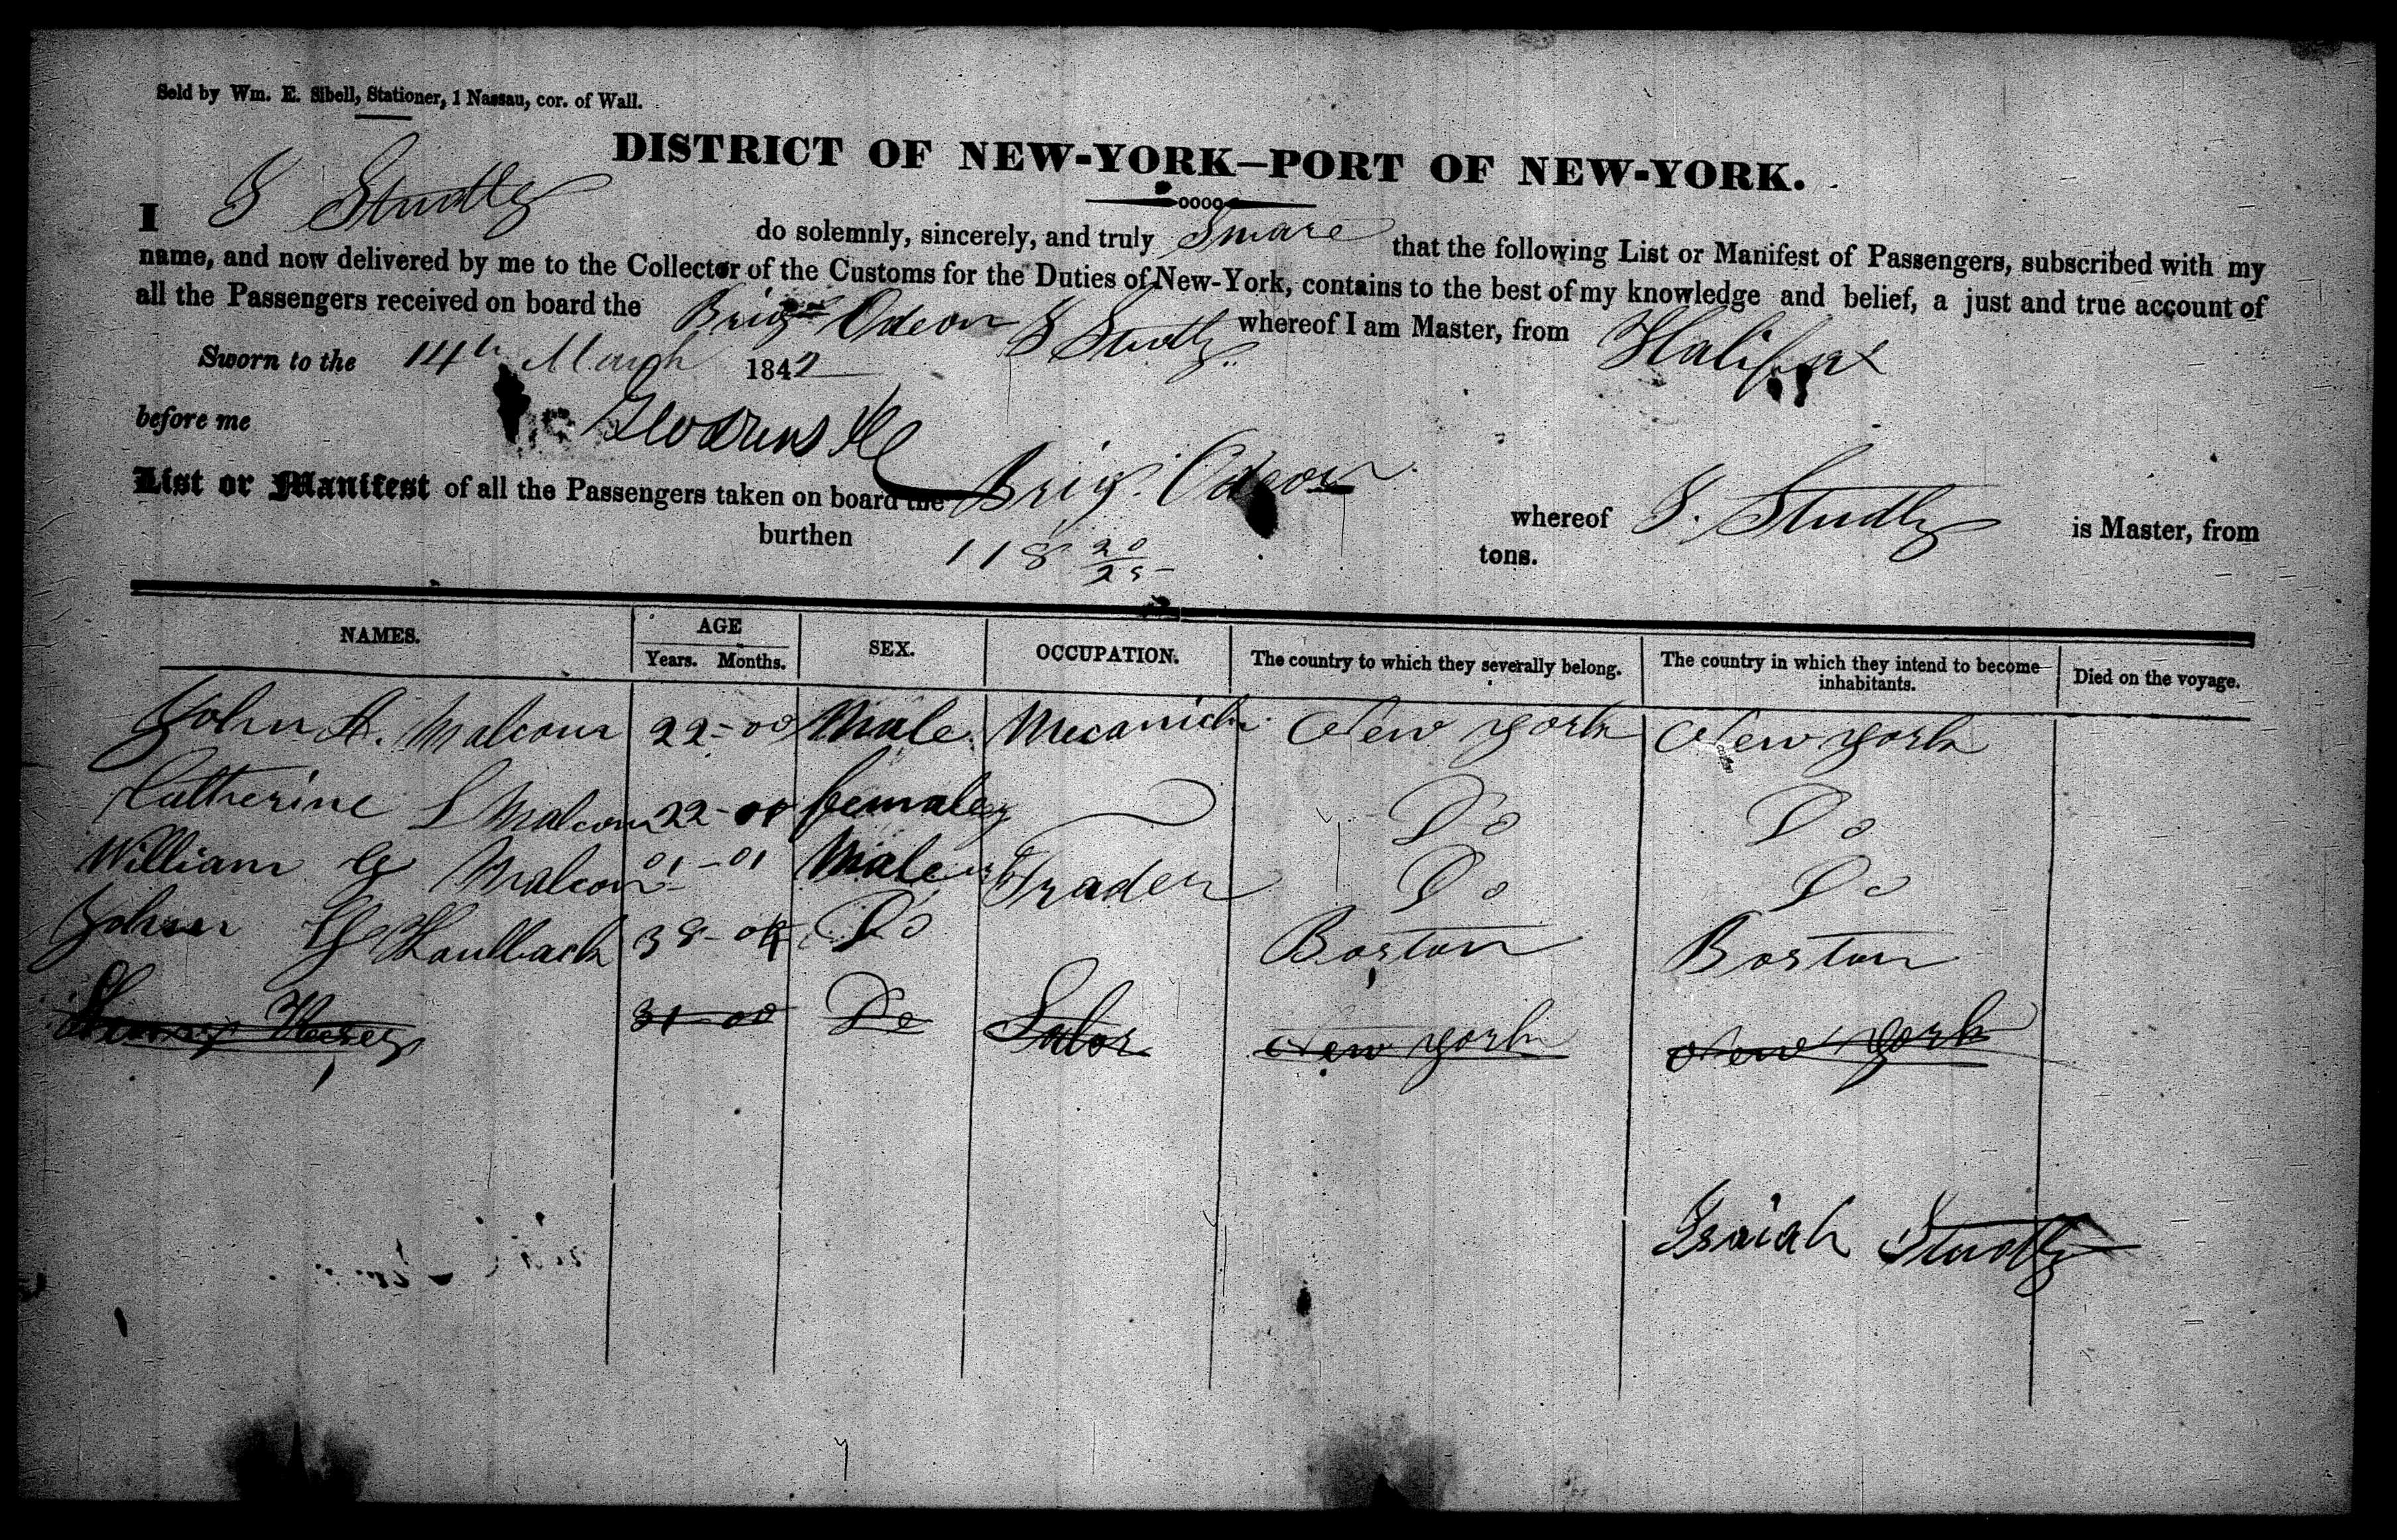 Sold by Wm. E. Sibell, Stationer, 1 Nassau, cor. of Wall.
DISTRICT OF NEW-YORK—PORT OF NEW-YORK.
I I Studly do solemnly, sincerely, and truly Sware that the following List or Manifest of Passengers, subscribed with my
name, and now delivered by me to the Collector of the Customs for the Duties of New-York, contains to the best of my knowledge and belief, a just and true account of
all the Passengers received on board the Brig Odeon I Studly whereof I am Master, from Halifax
Sworn to the 14th March 1842
before me
List or Manifest of all the Passengers taken on board the Brig. Odeon whereof I. Studly is Master, from
burthen 118 20/25 tons.
NAMES. AGE Years. Months. SEX. OCCUPATION. The country to which they severally belong. The country in which they intend to become inhabitants. Died on the voyage.
John A. Malcom 22-00 Male Mecanick New york New york
Catherine L Malcom 22-00 female Do Do
William G Malcom 01-01 Male Trader Do Do
John H Kaulback 38-04 Do Boston Boston
31-00 Do Labor New york New york
Isaiah Studly